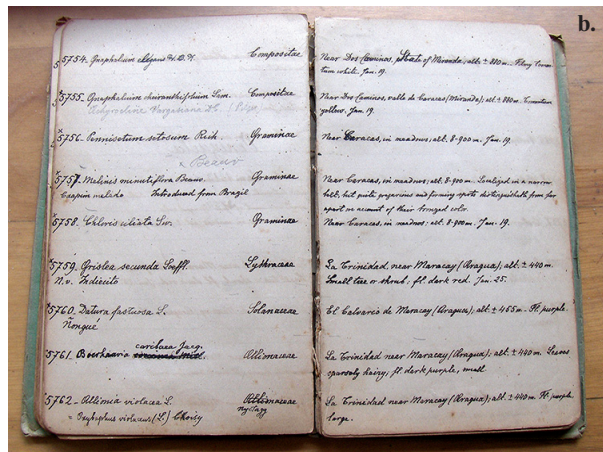 b.
5754. Gnaphalium elegans H.B.K. Compositae
5755. Gnaphalium cheiranthifolium Lam. Compositae
Achyrocline Vargasiana DC.
5756. Pennisetum setosum Rich. Graminae
x Beauv
5757. Melinis minutiflora Beauv. Graminae
Capim melado Introduced from Brazil
5758. Chloris ciliata Sw. Graminae
5759. Grislea secunda Loeffl. Lythraceae
N.v. Indiecito
5760. Datura fastuosa L. Solanaceae
Ñongué
caribaea Jacq.
5761. Boerhaavia Allionaceae
5762. Allionia violacea L. Allionaceae
= Oxybaphus violaceus (L.) Choisy Nyctagg
Near Dos Caminos, State of Miranda; alt. ± 880 m. Flory tomen
tum white. Jan. 19.
Near Dos Caminos, valle de Caracas (Miranda); alt. ± 880 m. Tomentum
yellow. Jan. 19.
Near Caracas, in meadows; alt. 8-900 m. Jan. 19.
Near Caracas, in meadows; alt. 8-900 m. Localized in a narrow
belt, but quite gregarious and forming spots distinguishable from far
apart on account of their bronzed color.
Near Caracas, in meadows; alt. 8-900 m. Jan. 19.
La Trinidad, near Maracay (Aragua); alt. ± 440 m.
Small tree or shrub. fl. dark red. Jan. 25.
El Calvario de Maracay (Aragua); alt. ± 465 m. Fl. purple.
La Trinidad near Maracay (Aragua); alt. ± 440 m. Leaves
sparsely hairy; fl. dark purple, small
La Trinidad near Maracay (Aragua); alt. ± 440 m. Fl. purple.
large.